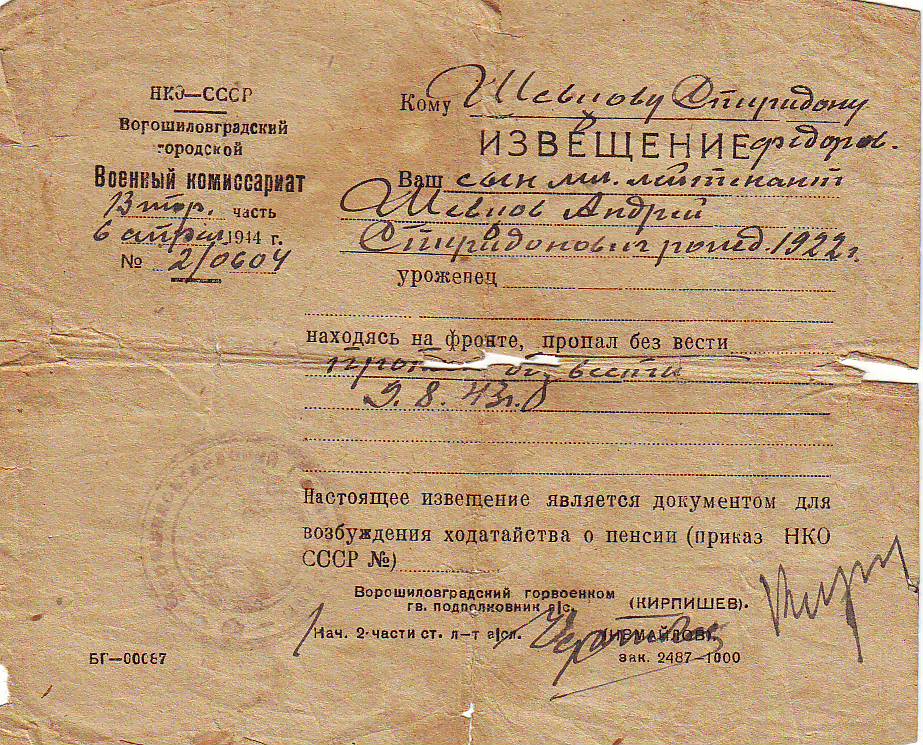 НКО—СССР
Ворошиловградский
городской
Военный комиссариат
часть
6 апрел 1944 г.
№ 2/0604
Кому Шевцову Спиридону
ИЗВЕЩЕНИЕ Федоров.
Ваш сын мл. лейтенант
Шевцов Андрей
Спиридонович рожд. 1922 г.
уроженец
находясь на фронте, пропал без вести
пропал без вести
9.8.43г.
Настоящее извещение является документом для
возбуждения ходатайства о пенсии (приказ НКО
СССР №)
Ворошиловградский горвоенком
гв. подполковник а|с.
(КИРПИШЕВ).
Нач. 2-части ст. л-т а|сл.
(ИЗМАЙЛОВ).
БГ—00087
зак. 2487—1000